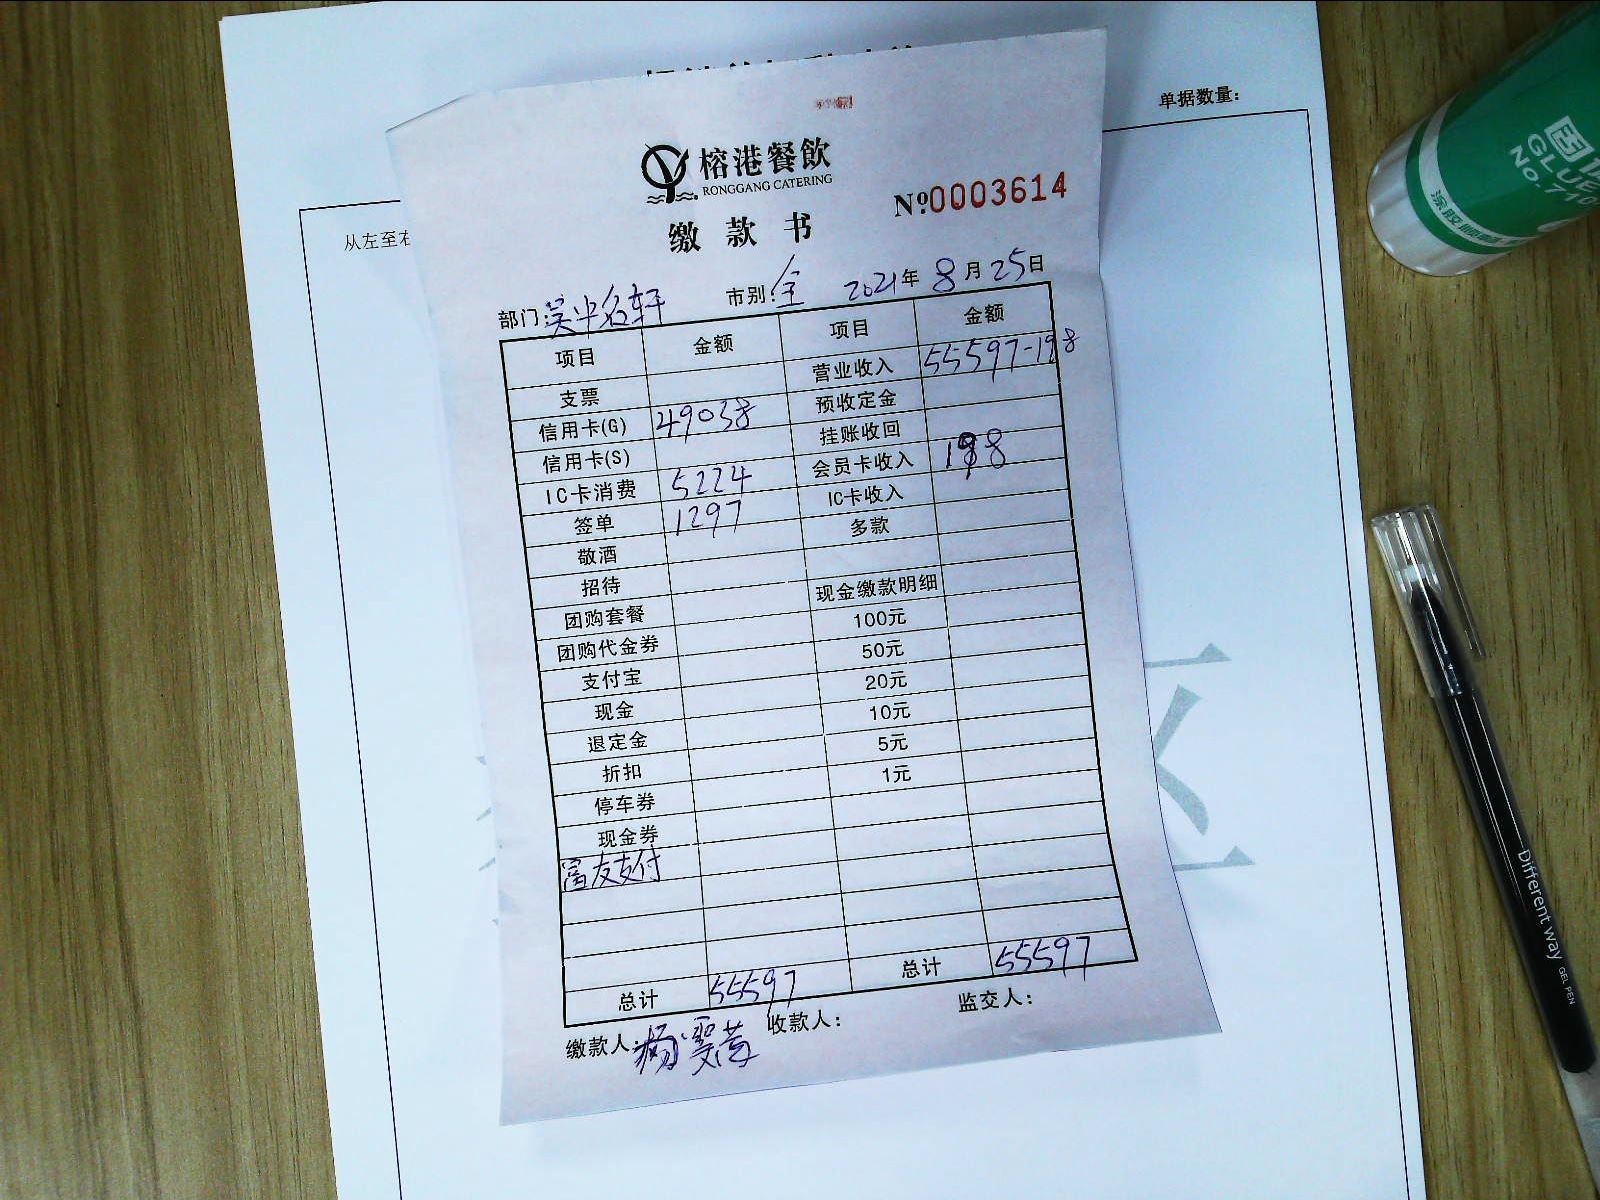 单据数量：
从左至右
榕港餐飲
RONGGANG CATERING
№0003614
缴款书
部门：吴中名轩 市别：全 2021年8月25日
项目 金额 项目 金额
支票 营业收入 55597-198
信用卡(G) 49038 预收定金
信用卡(S) 挂账收回
IC卡消费 5224 会员卡收入 198
签单 1297 IC卡收入
敬酒 多款
招待
团购套餐 现金缴款明细
团购代金券 100元
支付宝 50元
现金 20元
退定金 10元
折扣 5元
停车券 1元
现金券
富友支付
总计 55597 总计 55597
缴款人： 收款人： 监交人：
GLUE
NO.710
Different way GEL PEN